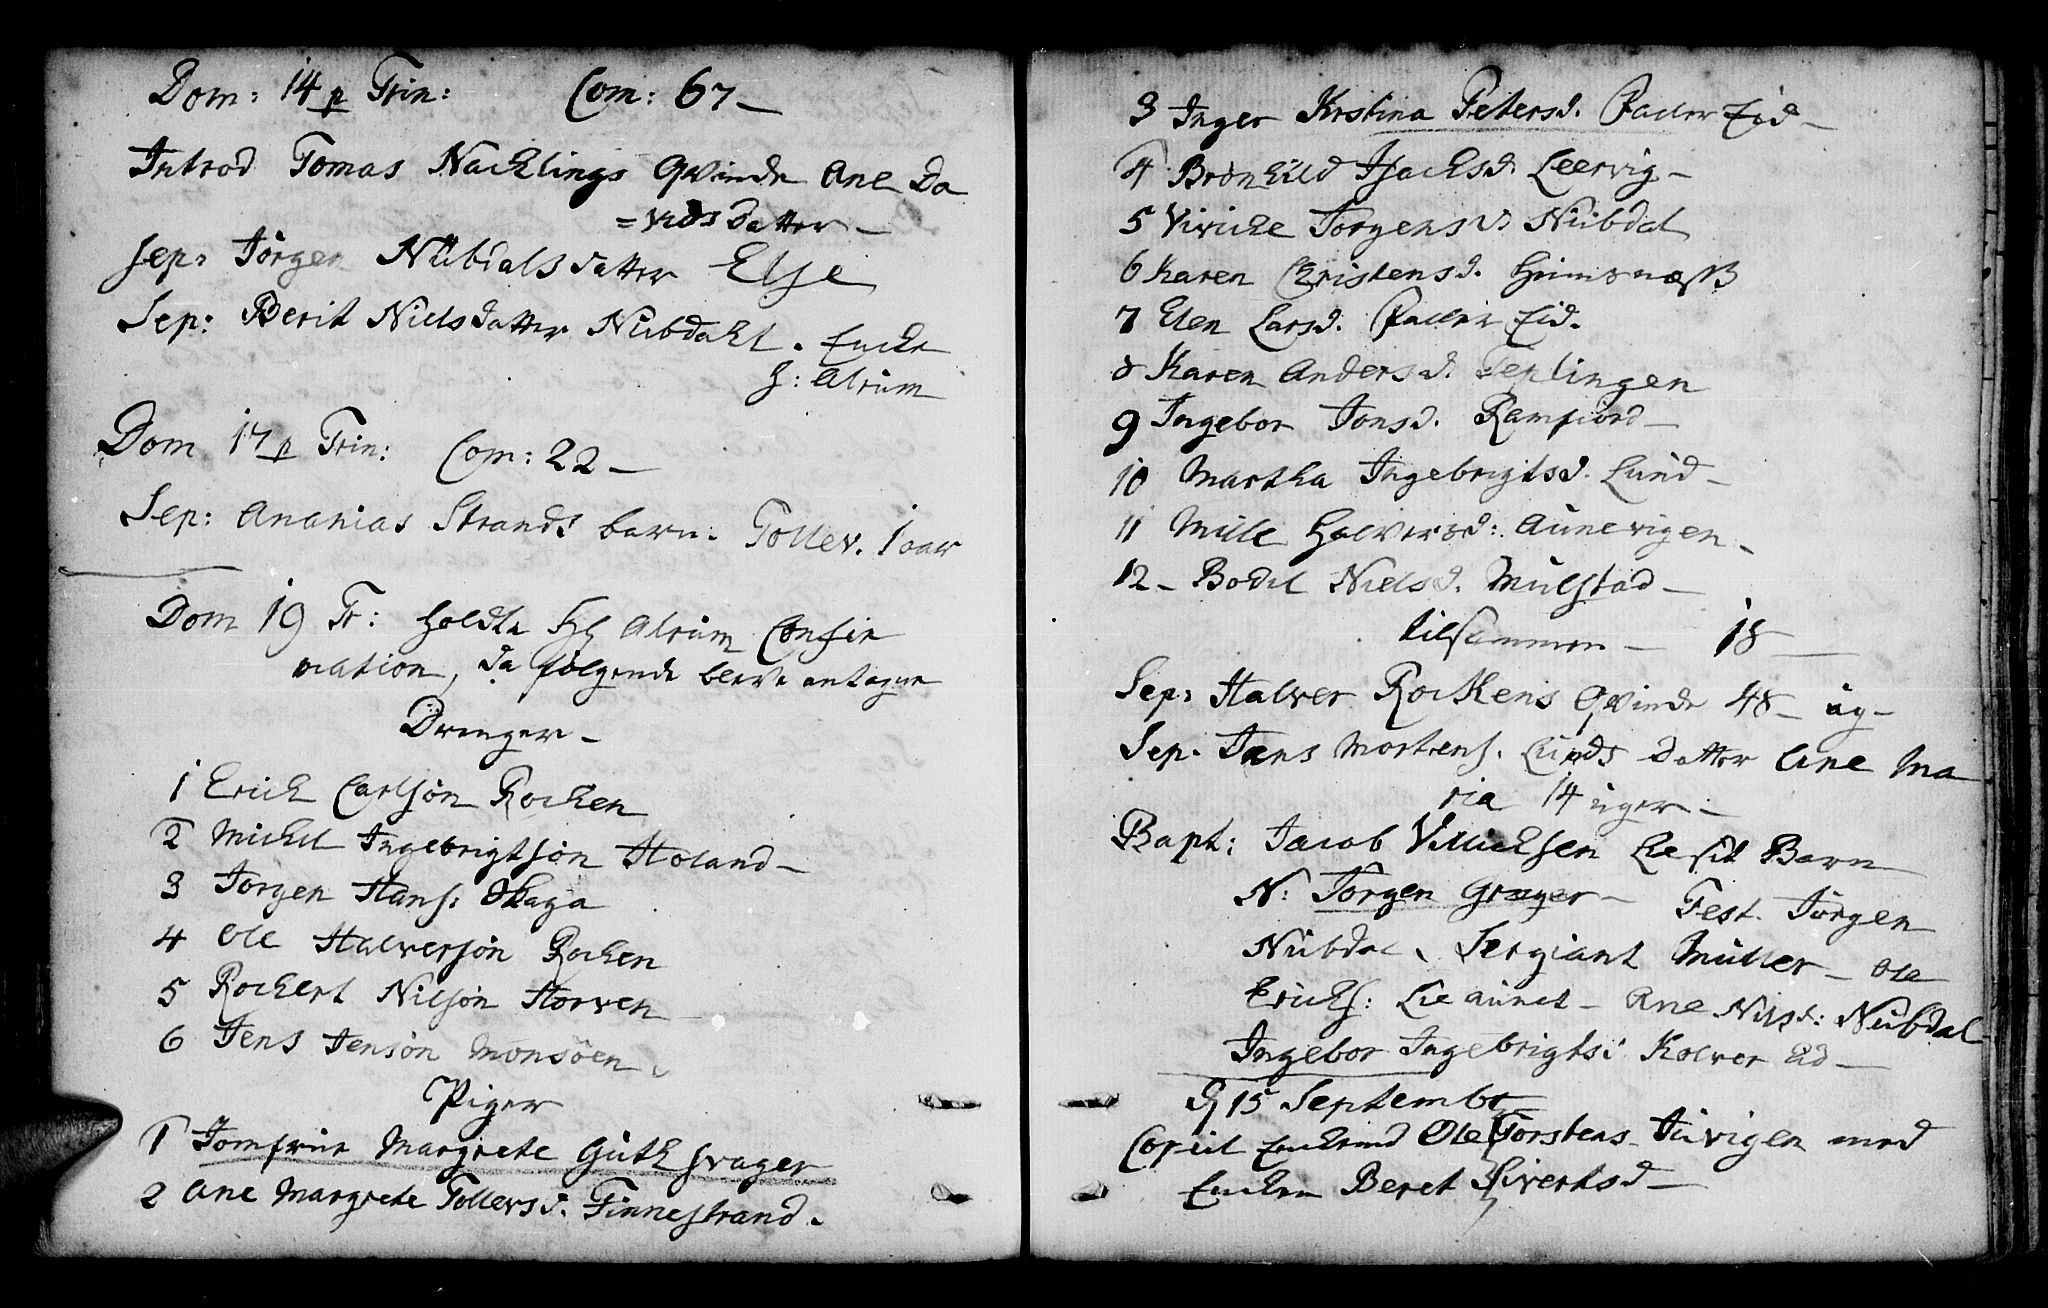 Dom: 14 p Trin: Com: 67 —
Introd Tomas Nacklings Qvinde Ane Da
= vids datter —
Sep: Jörgen Nübdals datter Else
Sep: Berit Nielsdatter Nübdahl. Encke
H: Alrum
Dom 17 p Trin: Com: 22 —
Sep: Ananias Strands barn. Tollev. 1 aar
Dom 19 Tr: holdte Alrum Confir
mation, da fölgende bleve antagne
Drenger —
1 Erich Carlsön Rocken
2 Mickel Ingebrigtsön Holand —
3 Jorgen Hans: Skaga
4 Ole Halversön Rocken
5 Rockert Nilsön Horven
6 Jens Jensön Monsöen
Piger
1 Jomfrue Margrete Güthsvager
2 Ane Margrete Tollevsd. Finnestrand.
3 Inger Krstina Petersd. Eid —
4 Bronhild Isachsd. Leervig —
5 Vivicke Jorgensd Nübdal
6 Karen Christensd. Heimsnæss
7 Elen Larsd. Eid.
8 Karen Andersd. Teplingen
9 Ingebor Jonsd. Ramfiord —
10 Martha Ingebrigtsd. Lund —
11 Mille Halversd: Aunevigen —
12 — Bodil Nielsd. Mulstad —
tilsammen — 18 —
Sep: Halver Rockens Qvinde 48 — ag —
Sep. Jens Mortens. Lunds datter Ane Ma
ria 14 uger —
Bapt: Jacob Villichsen Lie sit Barn
N: Jorgen Græger — Test. Jörgen
Nübdal, Sergiant Müller — Ole
Ericks: Lieaunet — Ane Nilsd: Nübdal
Ingebor Ingebrigtsd Kolver Eid —
D 15 September
Copul Enckemd Ole Torstens Juvigen med
Encken Beret Sivertsd —